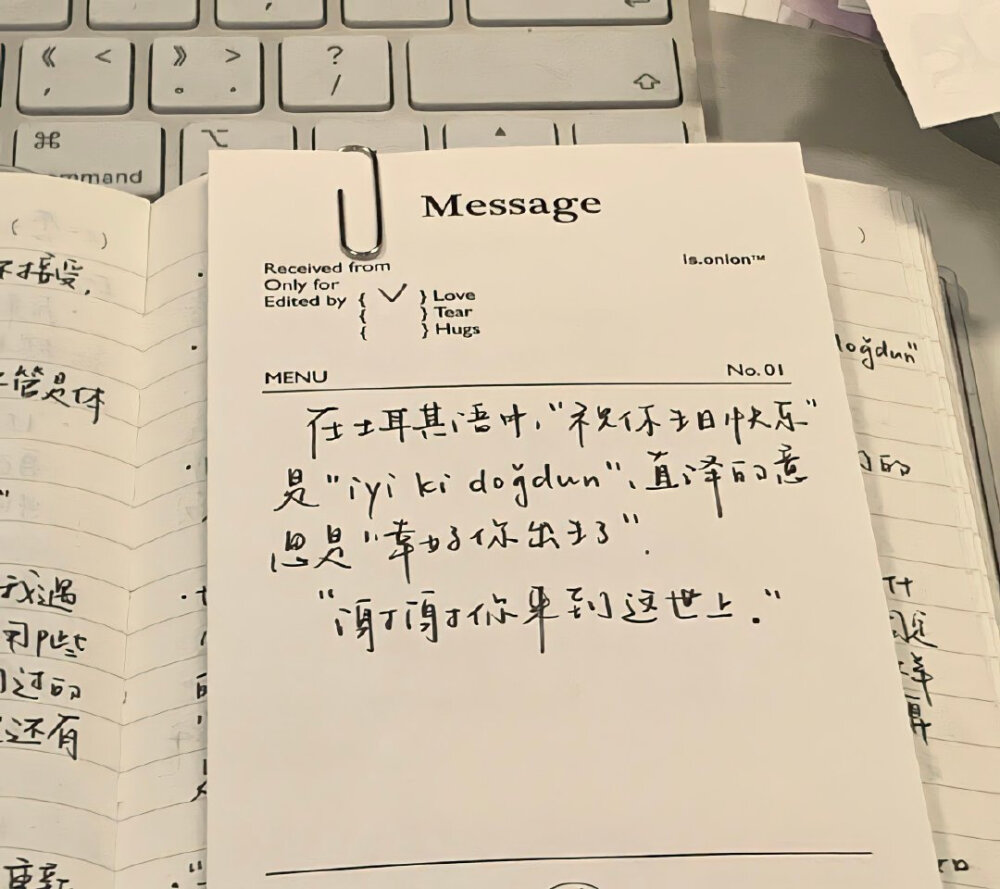 《 <
, 
》 >
。 .
?
/
⌘
⌥
mmand
Message
Received from
Only for
Edited by { ✓ } Love
{ } Tear
{ } Hugs
is.onion™
MENU
No.01
在土耳其语中,“祝你生日快乐”
是“iyi ki doğdun”,直译的意
思是“幸好你出生了”.
“谢谢你来到这世上.”
接受,
管是
我遇
那些
过的
还有
重新
oğdun"
的
什